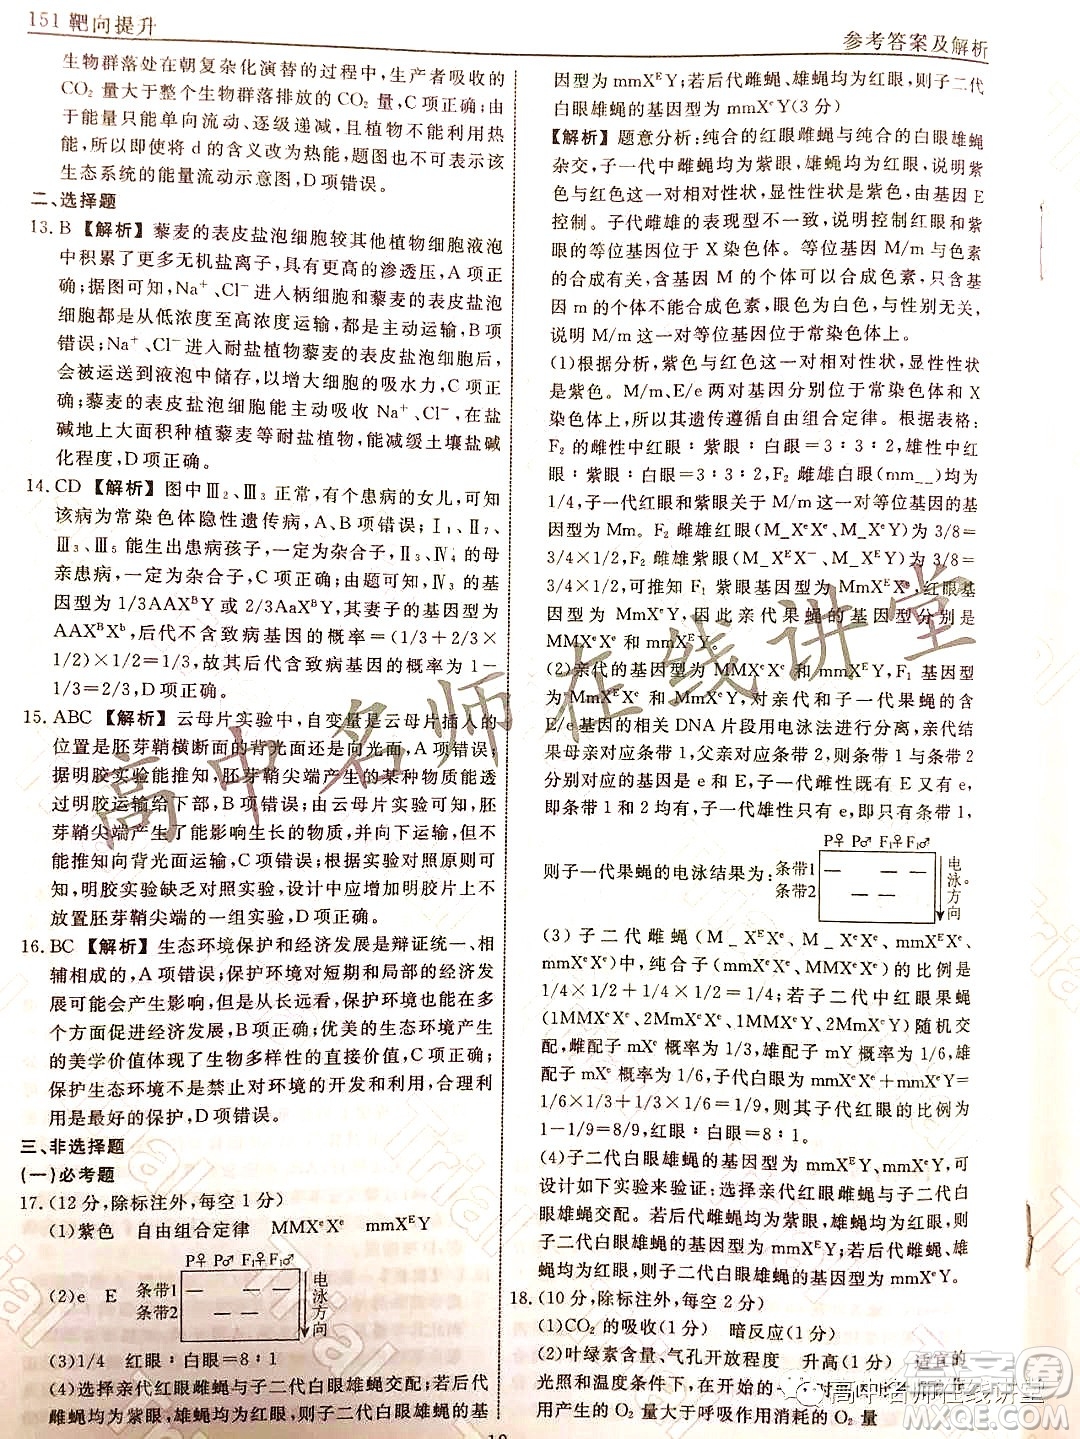 151 靶向提升
参考答案及解析
生物群落处在朝复杂化演替的过程中,生产者吸收的
CO₂ 量大于整个生物群落排放的 CO₂ 量,C 项正确;由
于能量只能单向流动、逐级递减,且植物不能利用热
能,所以即使将 d 的含义改为热能,该图也不能作为
生态系统的能量流动示意图,D项错误。
二、选择题
13. B 【解析】藜麦的表皮盐泡细胞较其他植物细胞液泡
中积累了更多无机盐离子,具有更高的渗透压,A 项正
确;据图可知,Na⁺、Cl⁻进入柄细胞和藜麦的表皮盐泡
细胞都是从低浓度至高浓度运输,都为主动运输,B 项
错误;Na⁺、Cl⁻进入耐盐植物藜麦的表皮盐泡细胞后,会
被运送到液泡中储存,以增大细胞的吸水力,C 项正
确;藜麦的表皮盐泡细胞能主动吸收 Na⁺、Cl⁻,在盐
碱地上大面积种植藜麦等耐盐植物,能减缓土壤盐碱
化程度,D 项正确。
14. CD 【解析】图中Ⅲ₂、Ⅲ₃ 正常,有个患病的女儿,可知
该病为常染色体隐性遗传病,A、B 项错误;Ⅰ₁、Ⅱ₇、
Ⅲ₃、Ⅲ₅ 能生出患病孩子,一定为杂合子,Ⅱ₂、Ⅳ₄ 的母
亲患病,一定为杂合子,C 项正确;由题可知,Ⅳ₄ 的基
因型为 1/3AAXᴮY 或 2/3AaXᴮY,其妻子的基因型为
AAXᴮXᵇ,后代不含致病基因的概率=(1/3+2/3×
1/2)×1/2=1/3,故其后代含致病基因的概率为 1-
1/3=2/3,D 项正确。
15. ABC 【解析】云母片实验中,自变量是云母片插入的
位置是胚芽鞘横断面的背光面还是向光面,A 项错误;
据明胶实验能推知,胚芽鞘尖端产生的某种物质能透
过明胶运输给下部,B 项错误;由云母片实验可知,胚
芽鞘尖端产生了能影响生长的物质,并向下运输,但不
能推知向背光面运输,C 项错误;两个实验对照原则可
知,明胶实验缺乏对照实验,设计中应增加明胶片上不
放置胚芽鞘尖端的一组实验,D 项正确。
16. BC 【解析】生态环境保护和经济发展是辩证统一、相
辅相成的,A 项错误;保护环境对短期和局部的经济发
展可能会产生影响,但是从长远看,保护环境可以在更
多个方面促进经济发展,B 项正确;优美的生态环境产生
的美学价值体现了生物多样性的直接价值,C 项正确;
保护生态环境不是禁止对环境的开发和利用,合理利
用是最好的保护,D 项错误。
三、非选择题
(一)必考题
17. (12 分,除标注外,每空 1 分)
(1)紫色 自由组合定律 MMXᵉXᵉ mmXᴱY
P♀ P♂ F₁♀ F₁♂
(2)e E 条带1 条带2 电泳方向
(3)1/4 红眼∶白眼=8∶1
(4)选择亲代红眼雌蝇与子二代白眼雄蝇交配。若后
代雌蝇均为紫眼,雄蝇均为红眼,则子二代白眼雄蝇的基
因型为 mmXᴱY;若后代雌蝇、雄蝇均为红眼,则子二代
白眼雄蝇的基因型为 mmXᵉY(3 分)
【解析】题意分析:纯合的红眼雌蝇与纯合的白眼雄蝇
杂交,子一代中雌蝇均为紫眼,雄蝇均为红眼,说明紫
色与红色是一对相对性状,显性性状是紫色,由基因 E
控制。子代雌雄的表现型不一致,说明控制红眼和紫
眼的等位基因位于 X 染色体。等位基因 M/m 与色素
的合成有关,含基因 M 的个体可以合成色素,只含基
因 m 的个体不能合成色素,眼色为白色,与性别无关,
说明 M/m 这一对等位基因位于常染色体上。
(1)根据分析,紫色与红色是一对相对性状,显性性状
是紫色。M/m、E/e 两对基因分别位于常染色体和 X
染色体上,所以其遗传遵循自由组合定律。根据表格:
F₂ 的雌性中红眼∶紫眼∶白眼=3∶3∶2,雄性中红
眼∶紫眼∶白眼=3∶3∶2,F₂ 雌雄白眼(mm__)均为
1/4,子一代红眼和紫眼关于 M/m 这一对等位基因的
基因型为 Mm。F₂ 雌雄红眼(M_XᵉXᵉ、M_XᵉY)为 3/8=
3/4×1/2,F₂ 雌雄紫眼(M_XᴱX⁻、M_XᴱY)为 3/8=
3/4×1/2,可推知 F₁ 紫眼基因型为 MmXᴱXᵉ,红眼基
因型为 MmXᵉY,因此亲代果蝇的基因型分别是
MMXᵉXᵉ 和 mmXᴱY。
(2)亲代的基因型为 MMXᵉXᵉ 和 mmXᴱY,F₁ 的基因
型为 MmXᴱXᵉ 和 MmXᵉY,对亲代和子一代果蝇的含
E/e基因的相关 DNA 片段用电泳法进行分离,亲代结
果母亲对应条带1,父亲对应条带2,则条带1 与条带2
分别对应的基因是 e 和 E,子一代雌性既有 E 又有 e,
即条带 1 和 2 均有,子一代雄性只有 e,即只有条带 1,
P♀ P♂ F₁♀ F₁♂
则子一代果蝇的电泳结果为: 条带1 条带2 电泳方向。
(3)子二代雌蝇(M_XᴱXᵉ、M_XᵉXᵉ、mmXᴱXᵉ、
mmXᵉXᵉ)中,纯合子(mmXᵉXᵉ、MMXᵉXᵉ)的比例是
1/4×1/2+1/4×1/2=1/4;若子二代中红眼果蝇
(1MMXᵉXᵉ、2MmXᵉXᵉ、1MMXᵉY、2MmXᵉY)随机交
配,雌配子 mXᵉ 概率为 1/3,雄配子 mY 概率为 1/6,雄
配子 mXᵉ 概率为 1/6,子代白眼的概率是 1/3×
1/6+1/3×1/6=1/9,所以子代红眼的概率是
1-1/9=8/9,即红眼∶白眼=8∶1。
(4)子二代白眼雄蝇的基因型为 mmXᴱY 或 mmXᵉY,
设计如下实验来验证:选择亲代红眼雌蝇与子二代白眼
雄蝇交配。若后代雌蝇均为紫眼,雄蝇均为红眼,则子
二代白眼雄蝇的基因型为 mmXᴱY;若后代雌蝇、雄蝇
均为红眼,则子二代白眼雄蝇的基因型为 mmXᵉY。
18. (10 分,除标注外,每空 2 分)
(1)CO₂ 的吸收(1 分) 暗反应(1 分)
(2)叶绿素含量、气孔开放程度 升高(1 分) 适宜的
光照和温度条件下,在较大的 时间 光合作
用产生的 O₂ 量大于呼吸作用消耗的 O₂ 量
高中名师在线讲堂
Trial
高中名师在线讲堂
答案圈
MXQE.COM